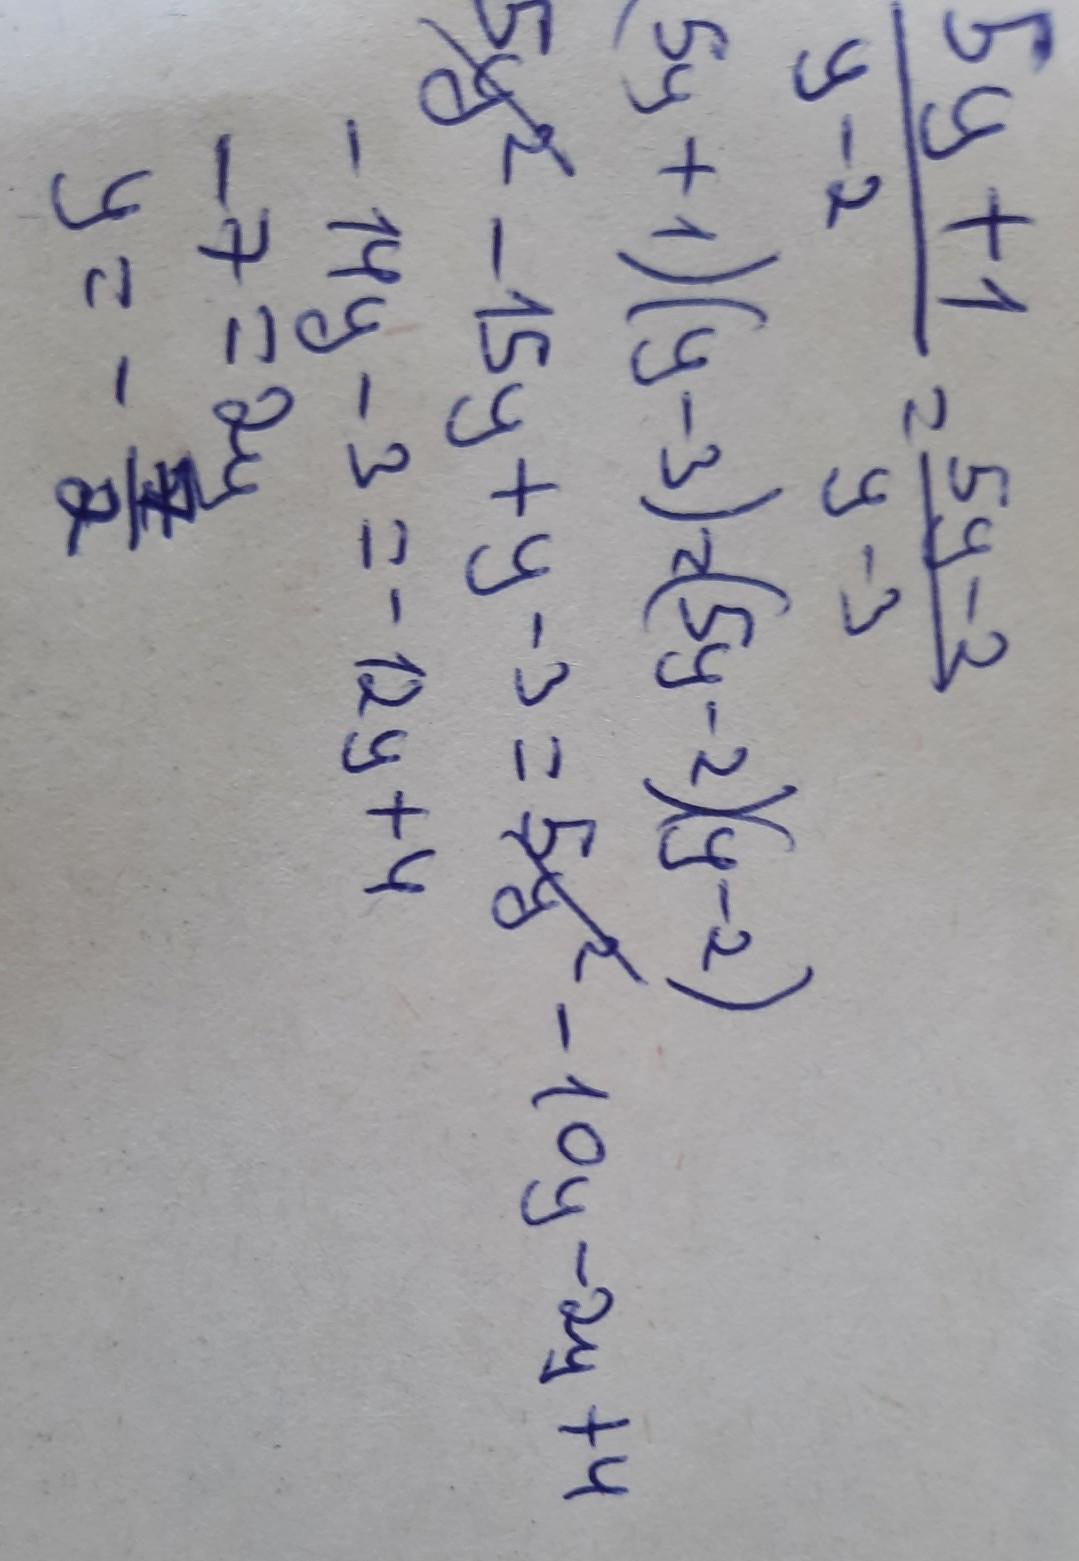 5y+1/y-2 = 5y-2/y-3
(5y+1)(y-3)=(5y-2)(y-2)
5y²-15y+y-3=5y²-10y-2y+4
-14y-3=-12y+4
-7=2y
y=-7/2